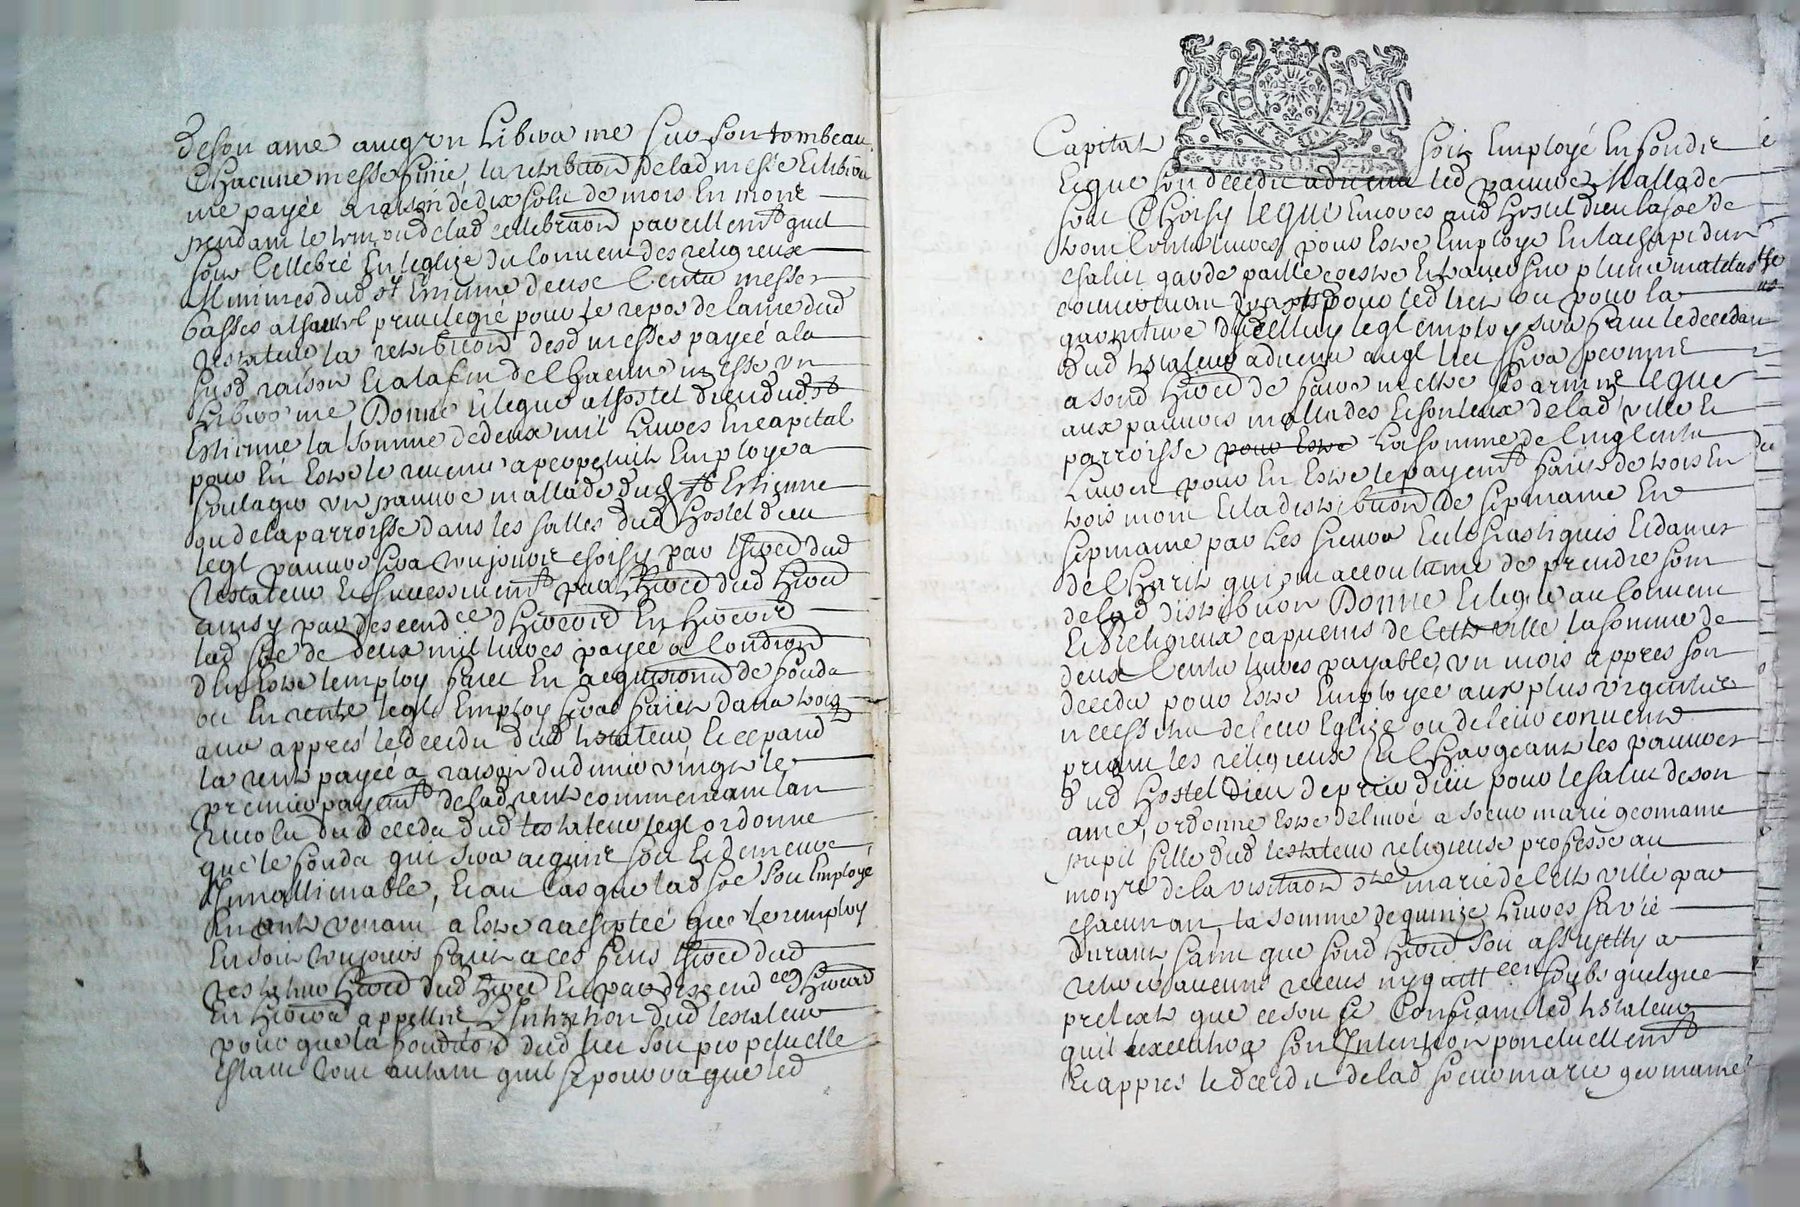 de son ame avec un Libera me sur son tombeau
Chacune messe finie la retribu͠on de lad messe et libera
me payée a raison de dix solz de mois en mois
pendant le temps de lad cellebra͠on pareillemt quil
soit cellebré en leglize du convent des religieux
Minimes dud St Estienne deux Cents messes
basses a lhautel privilegié pour le repos de lame dud
testateur la retribu͠on desd messes payée a la
susd raison et a la fin de chacune messe un
Libera me Donne et legue a lhostel dieu dud St
Estienne la somme de deux mil Livres en capital
pour en estre le revenu a perpetuité Employé a
soulager un pauvre mallade dud St Estienne
ou de la parroisse dans les salles dud Hostel dieu
leql pauvre sera toujours choisy par lhered dud
testateur et successivemt par lhered dud hered
ainsy par descendce d'hered en hered
lad soe de deux mil livres payée a condi͠on
d'en estre lemploy faict en acquisi͠on de fonds
ou en rente leql Employ sera faict dans trois
ans appres le decedz dud testateur et cepand
la rente payée a raison du denier vingt le
premier payemt de lad rente commencant lan
revolu du decedz dud testateur leql ordonne
que le fonds qui sera acquis soit et demeure
Innallienable, et au cas que lad soe soit Employe
en rente venant a estre rachiptée que le remploy
en soit toujours faict a ces fins lhered dud
testateur hered dud hered et par descendce d'hered
en hered appellné l'Intention dud testateur
pour que la fonda͠on dud lict soit perpetuelle
estant tout autant quil se pourra que led
Capital soit Employé en fonds
Et que son decedz advenu led pauvre Mallade
soit Choisy legue encores aud Hostel dieu la soe de
trois Cents livres pour estre Employé en lachapt dun
chalit garde paille coestre et traversier plume matelas
couverture draps pour led lict ou pour la
garniture d'Icelluy leql employ sera faict le decedz
dud testateur advenu auql lict sera permis
a sond hered de faire mettre ses armes legue
aux pauvres malades et honteux de lad ville et
parroisse pour estre La somme de Cinq Cents
Livres pour en estre le payemt faict de trois en
trois mois et la distribu͠on de sepmaine en
sepmaine par les sieurs Eclesiastiques et dames
de Charité qui ont accoutumé de prendre soin
de lad distribution Donne et legue au convent
et Religieux capucins de Cette ville la somme de
deux Cents livres payable un mois appres son
decedz pour estre Employée aux plus urgentes
necessités de leur Eglize ou de leur convent
priant les religieux Et Chargeant les pauvres
dud Hostel Dieu de prier Dieu pour le salut de son
ame, ordonne estre delivré a soeur marie
pupil fille dud testateur religieuse professe au
monre de la visita͠on ste marie de Cette ville par
chacun an, la somme de quinze Livres sa vie
durant sans que sond hered soit assujetty a
retirer aucuns receus ny quittcen soubs quelque
pretexte que ce soit se Confiant led testateur
quil executtera son Intention ponctuellemt
Et appres le decedz de lad soeur marie